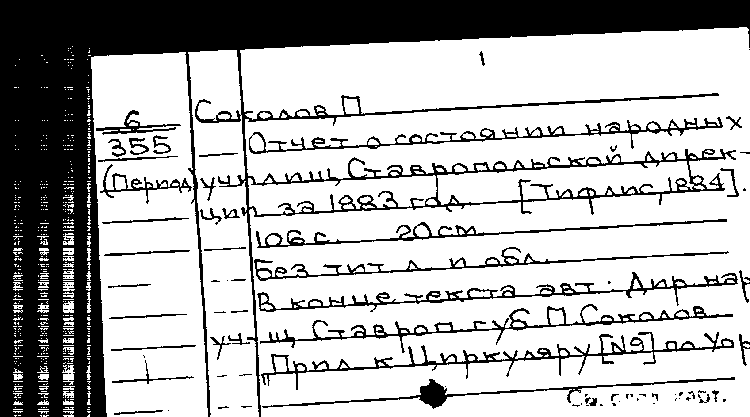 1
6
Соколов, П
355
Отчет о состоянии народных
(Период) училищ Ставропольской дирек-
ции за 1883 год. [Тифлис, 1884].
106 с. 20 см.
Без тит. л. и обл.
В конце текста авт.: Дир. нар
уч-щ Ставроп. губ. П. Соколов
"Прил. к Циркуляру [№9] по
См. след. карт.